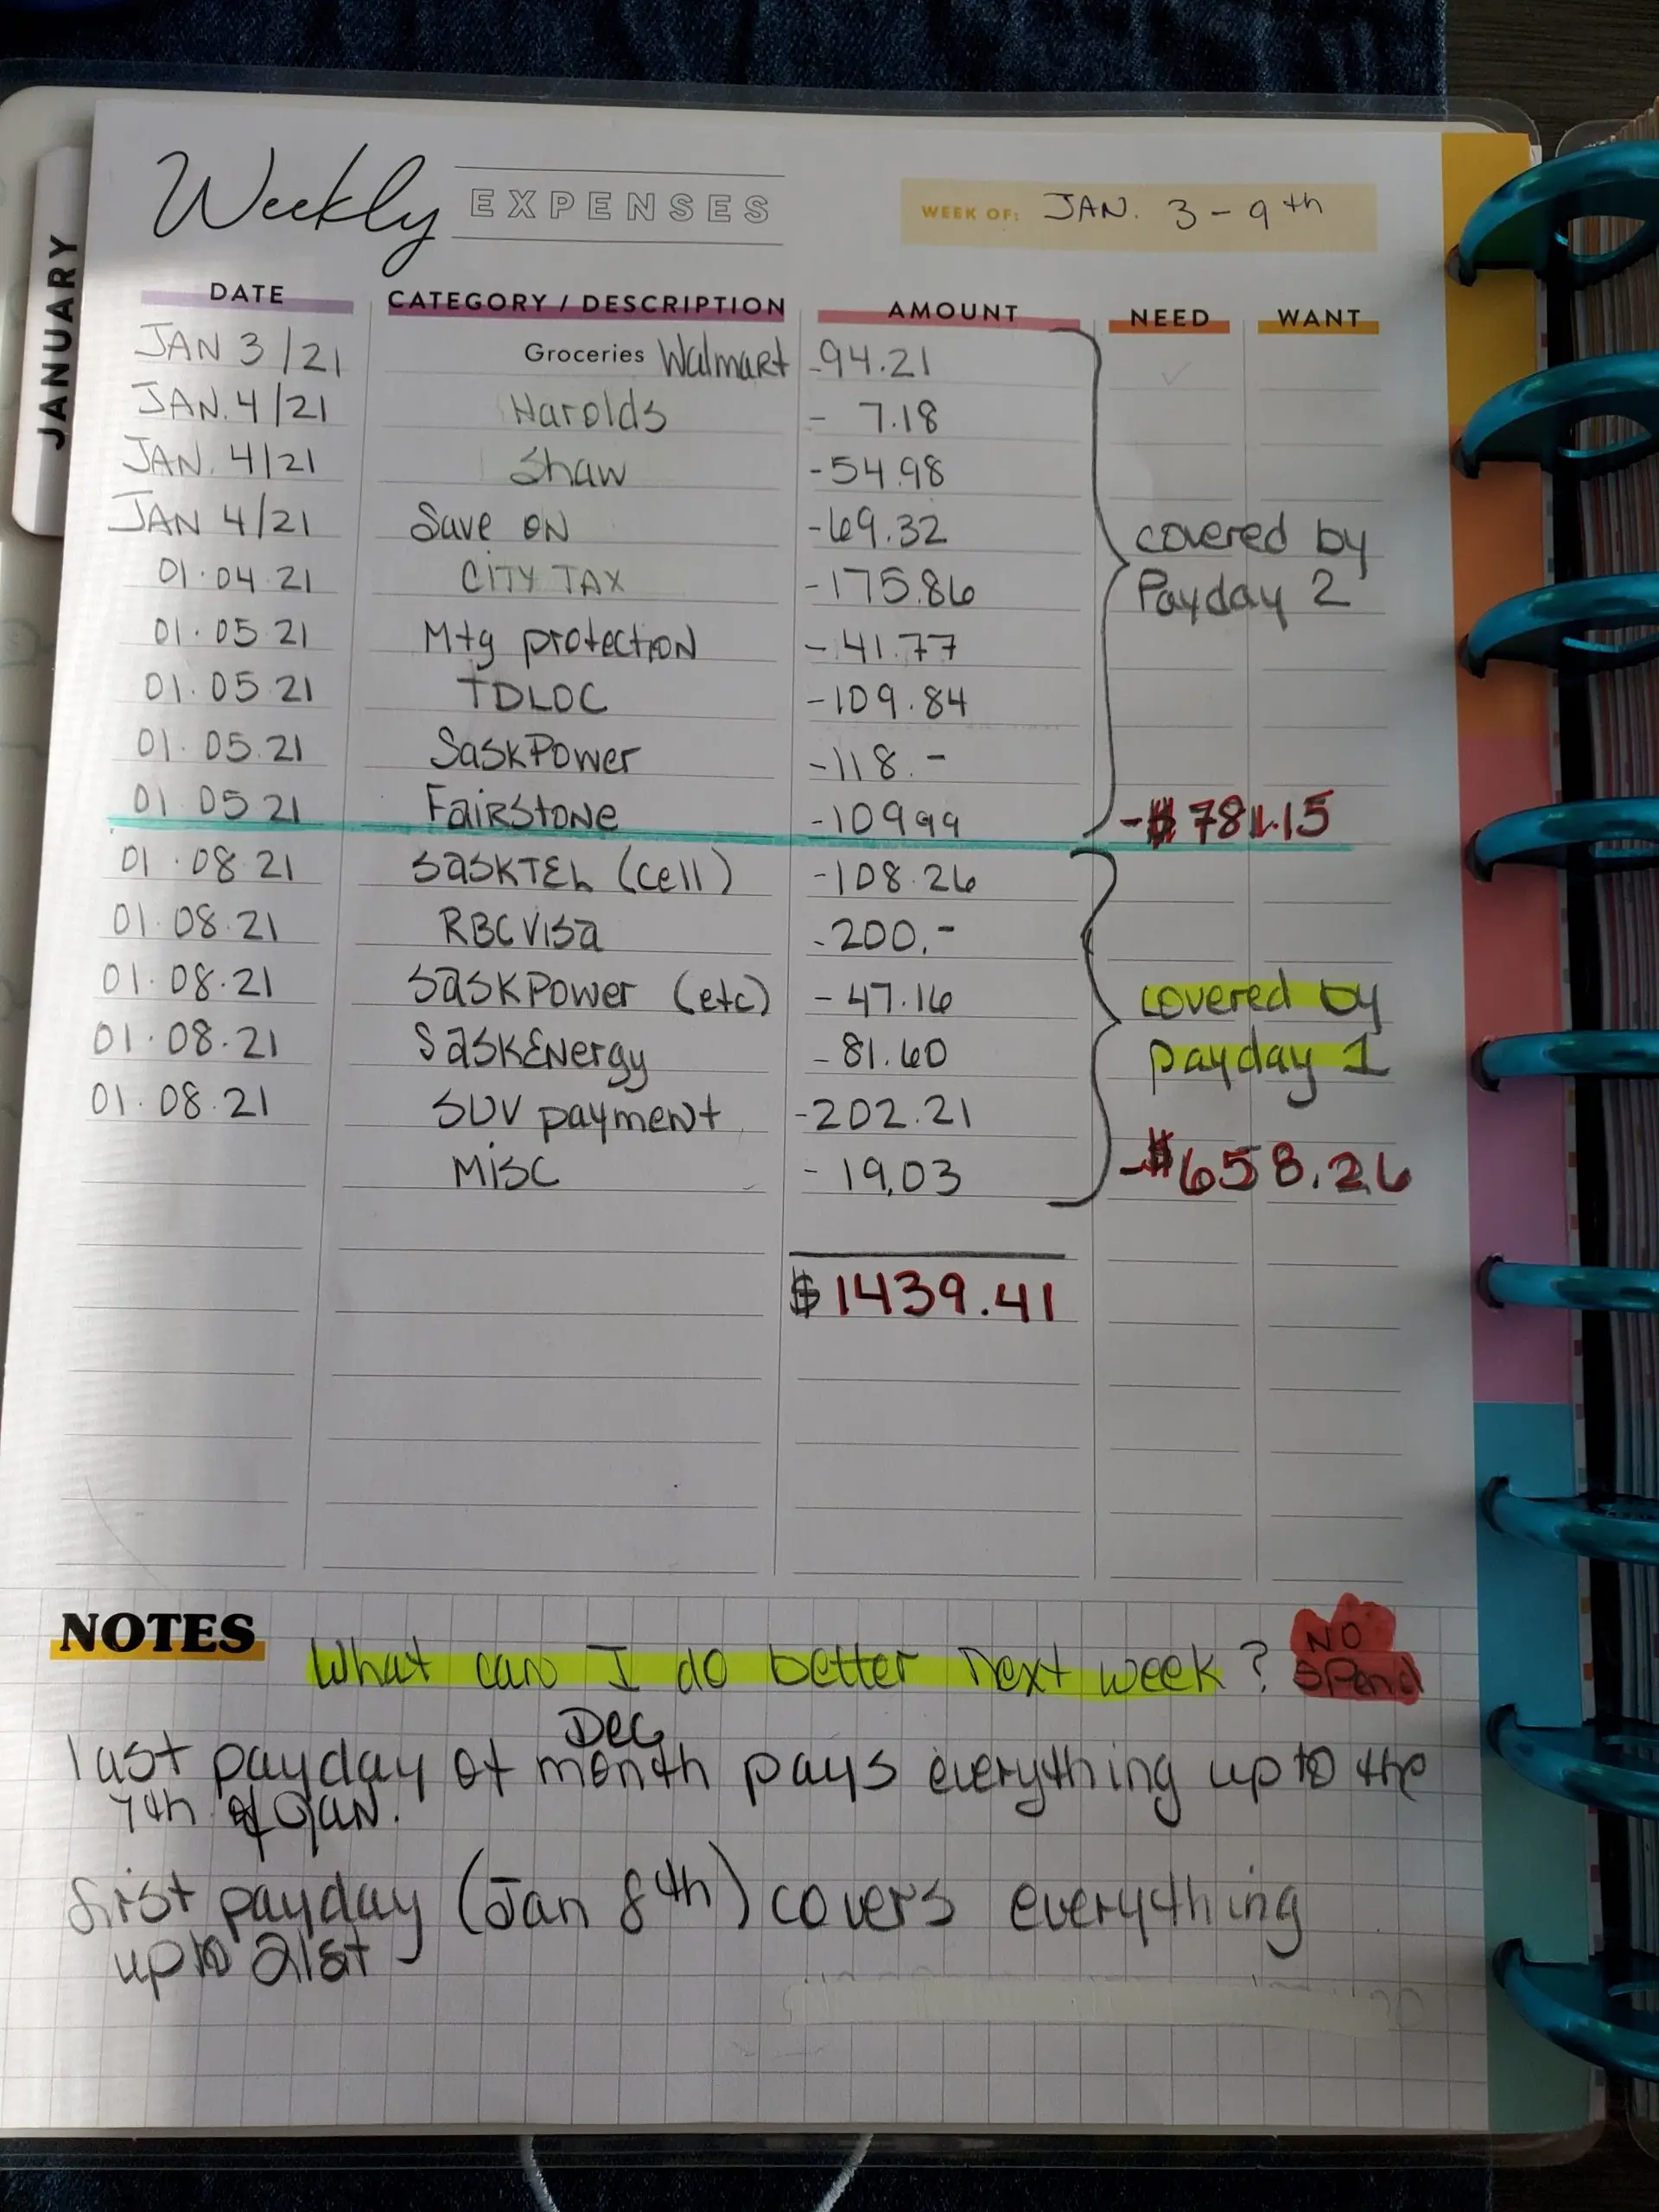 JANUARY
Weekly EXPENSES
WEEK OF: JAN. 3 - 9th
DATE CATEGORY / DESCRIPTION AMOUNT NEED WANT
JAN 3/21 Groceries Walmart -94.21
JAN. 4/21 Harolds - 7.18
JAN. 4/21 Shaw -54.98
JAN 4/21 Save ON -69.32
covered by
01.04.21 CITY TAX -175.86
Payday 2
01.05.21 Mtg protection -41.77
01.05.21 TDLOC -109.84
01.05.21 SaskPower -118.-
01 05 21 Fairstone -109 99 -$781.15
01.08.21 SASKTEL (cell) -108.26
01.08.21 RBC Visa -200.-
01.08.21 SaskPower (etc) -47.16
covered by
01.08.21 SaskEnergy -81.60
payday 1
01.08.21 SUV payment -202.21
Misc -19.03 -$658.26
$1439.41
NOTES What can I do better next week? NO
Spend
Dec
last payday of month pays everything up to the
7th of Jan.
first payday (Jan 8th) covers everything
up to 21st